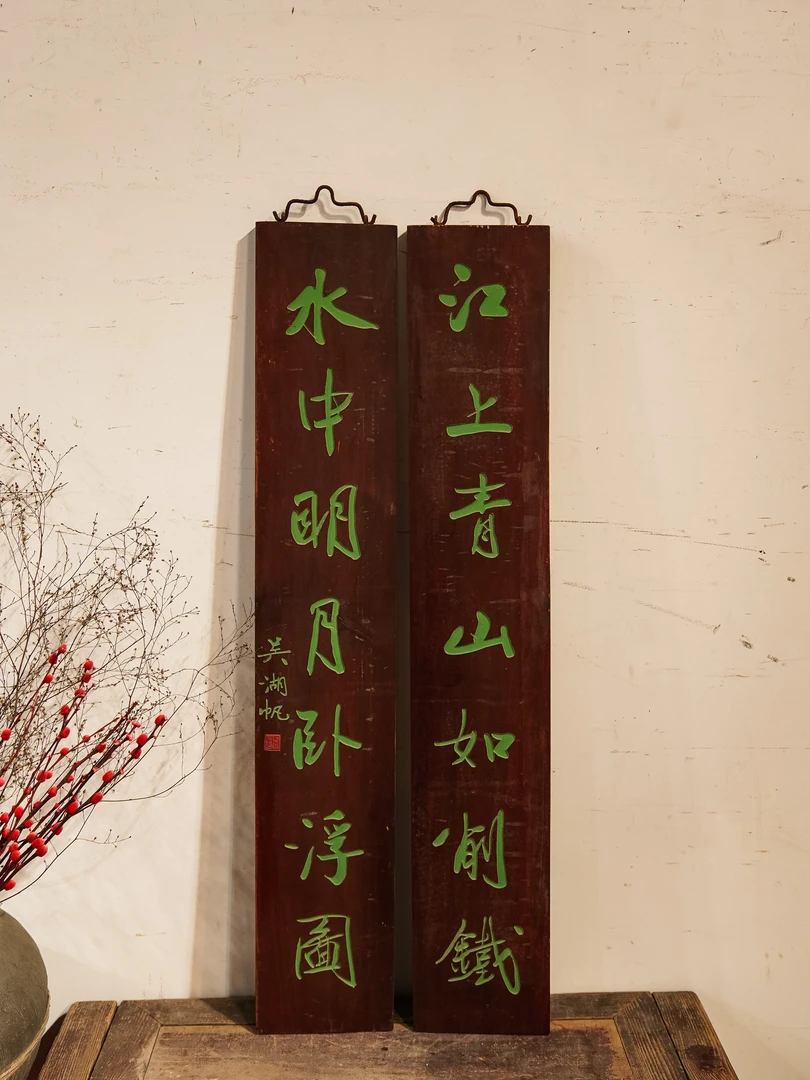 江上青山如削鐵
水中明月卧浮圖
吴湖帆